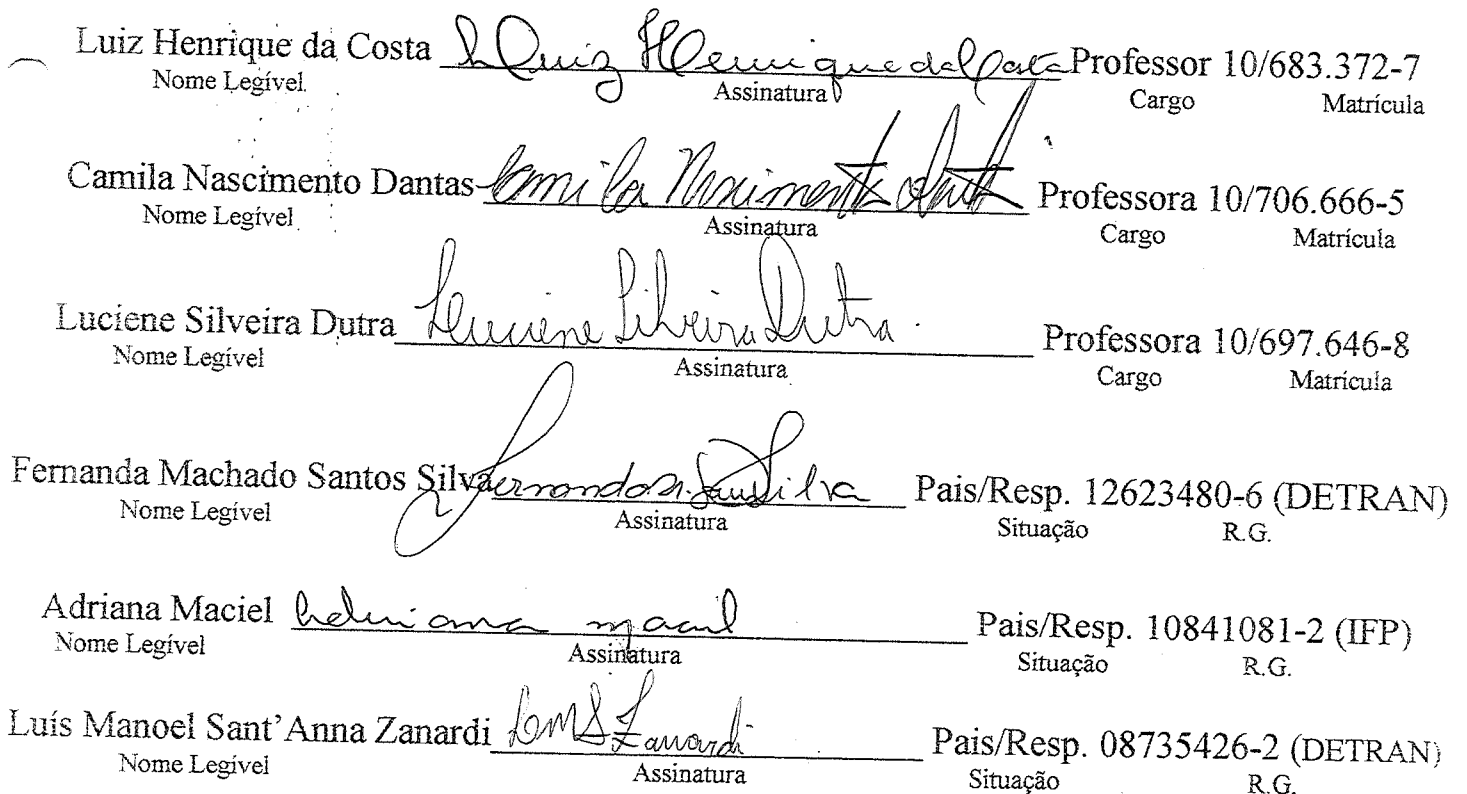 Luiz Henrique da Costa Luiz Henrique da Costa Professor 10/683.372-7
Nome Legível Assinatura Cargo Matrícula
Camila Nascimento Dantas Camila Nascimento Professora 10/706.666-5
Nome Legível Assinatura Cargo Matrícula
Luciene Silveira Dutra Luciene Silveira Dutra Professora 10/697.646-8
Nome Legível Assinatura Cargo Matrícula
Fernanda Machado Santos Silva Silva Pais/Resp. 12623480-6 (DETRAN)
Nome Legível Assinatura Situação R.G.
Adriana Maciel Adriana Maciel Pais/Resp. 10841081-2 (IFP)
Nome Legível Assinatura Situação R.G.
Luís Manoel Sant'Anna Zanardi LMS Zanardi Pais/Resp. 08735426-2 (DETRAN)
Nome Legível Assinatura Situação R.G.